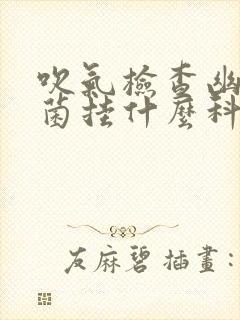 吹氣檢查幽
菌挂什麼科
友麻碧 插畫: